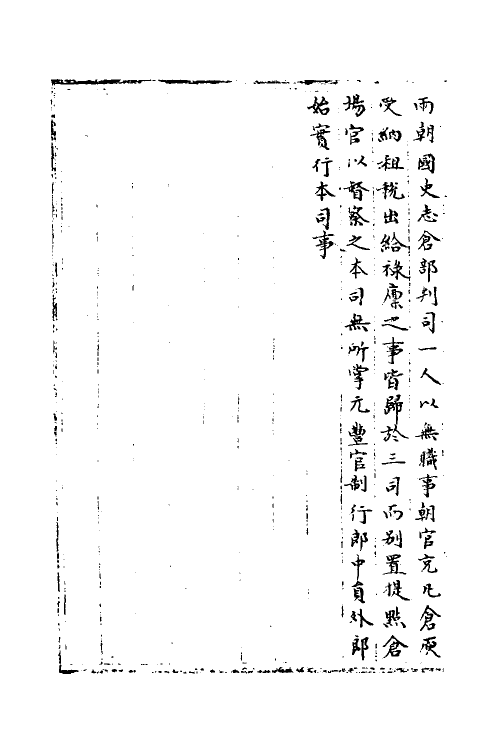 兩朝國史志倉部判司一人以無職事朝官充凡倉庾
受納租稅出給祿廩之事皆歸於三司而別置提點倉
場官以督察之本司無所掌元豐官制行郎中員外郎
始實行本司事